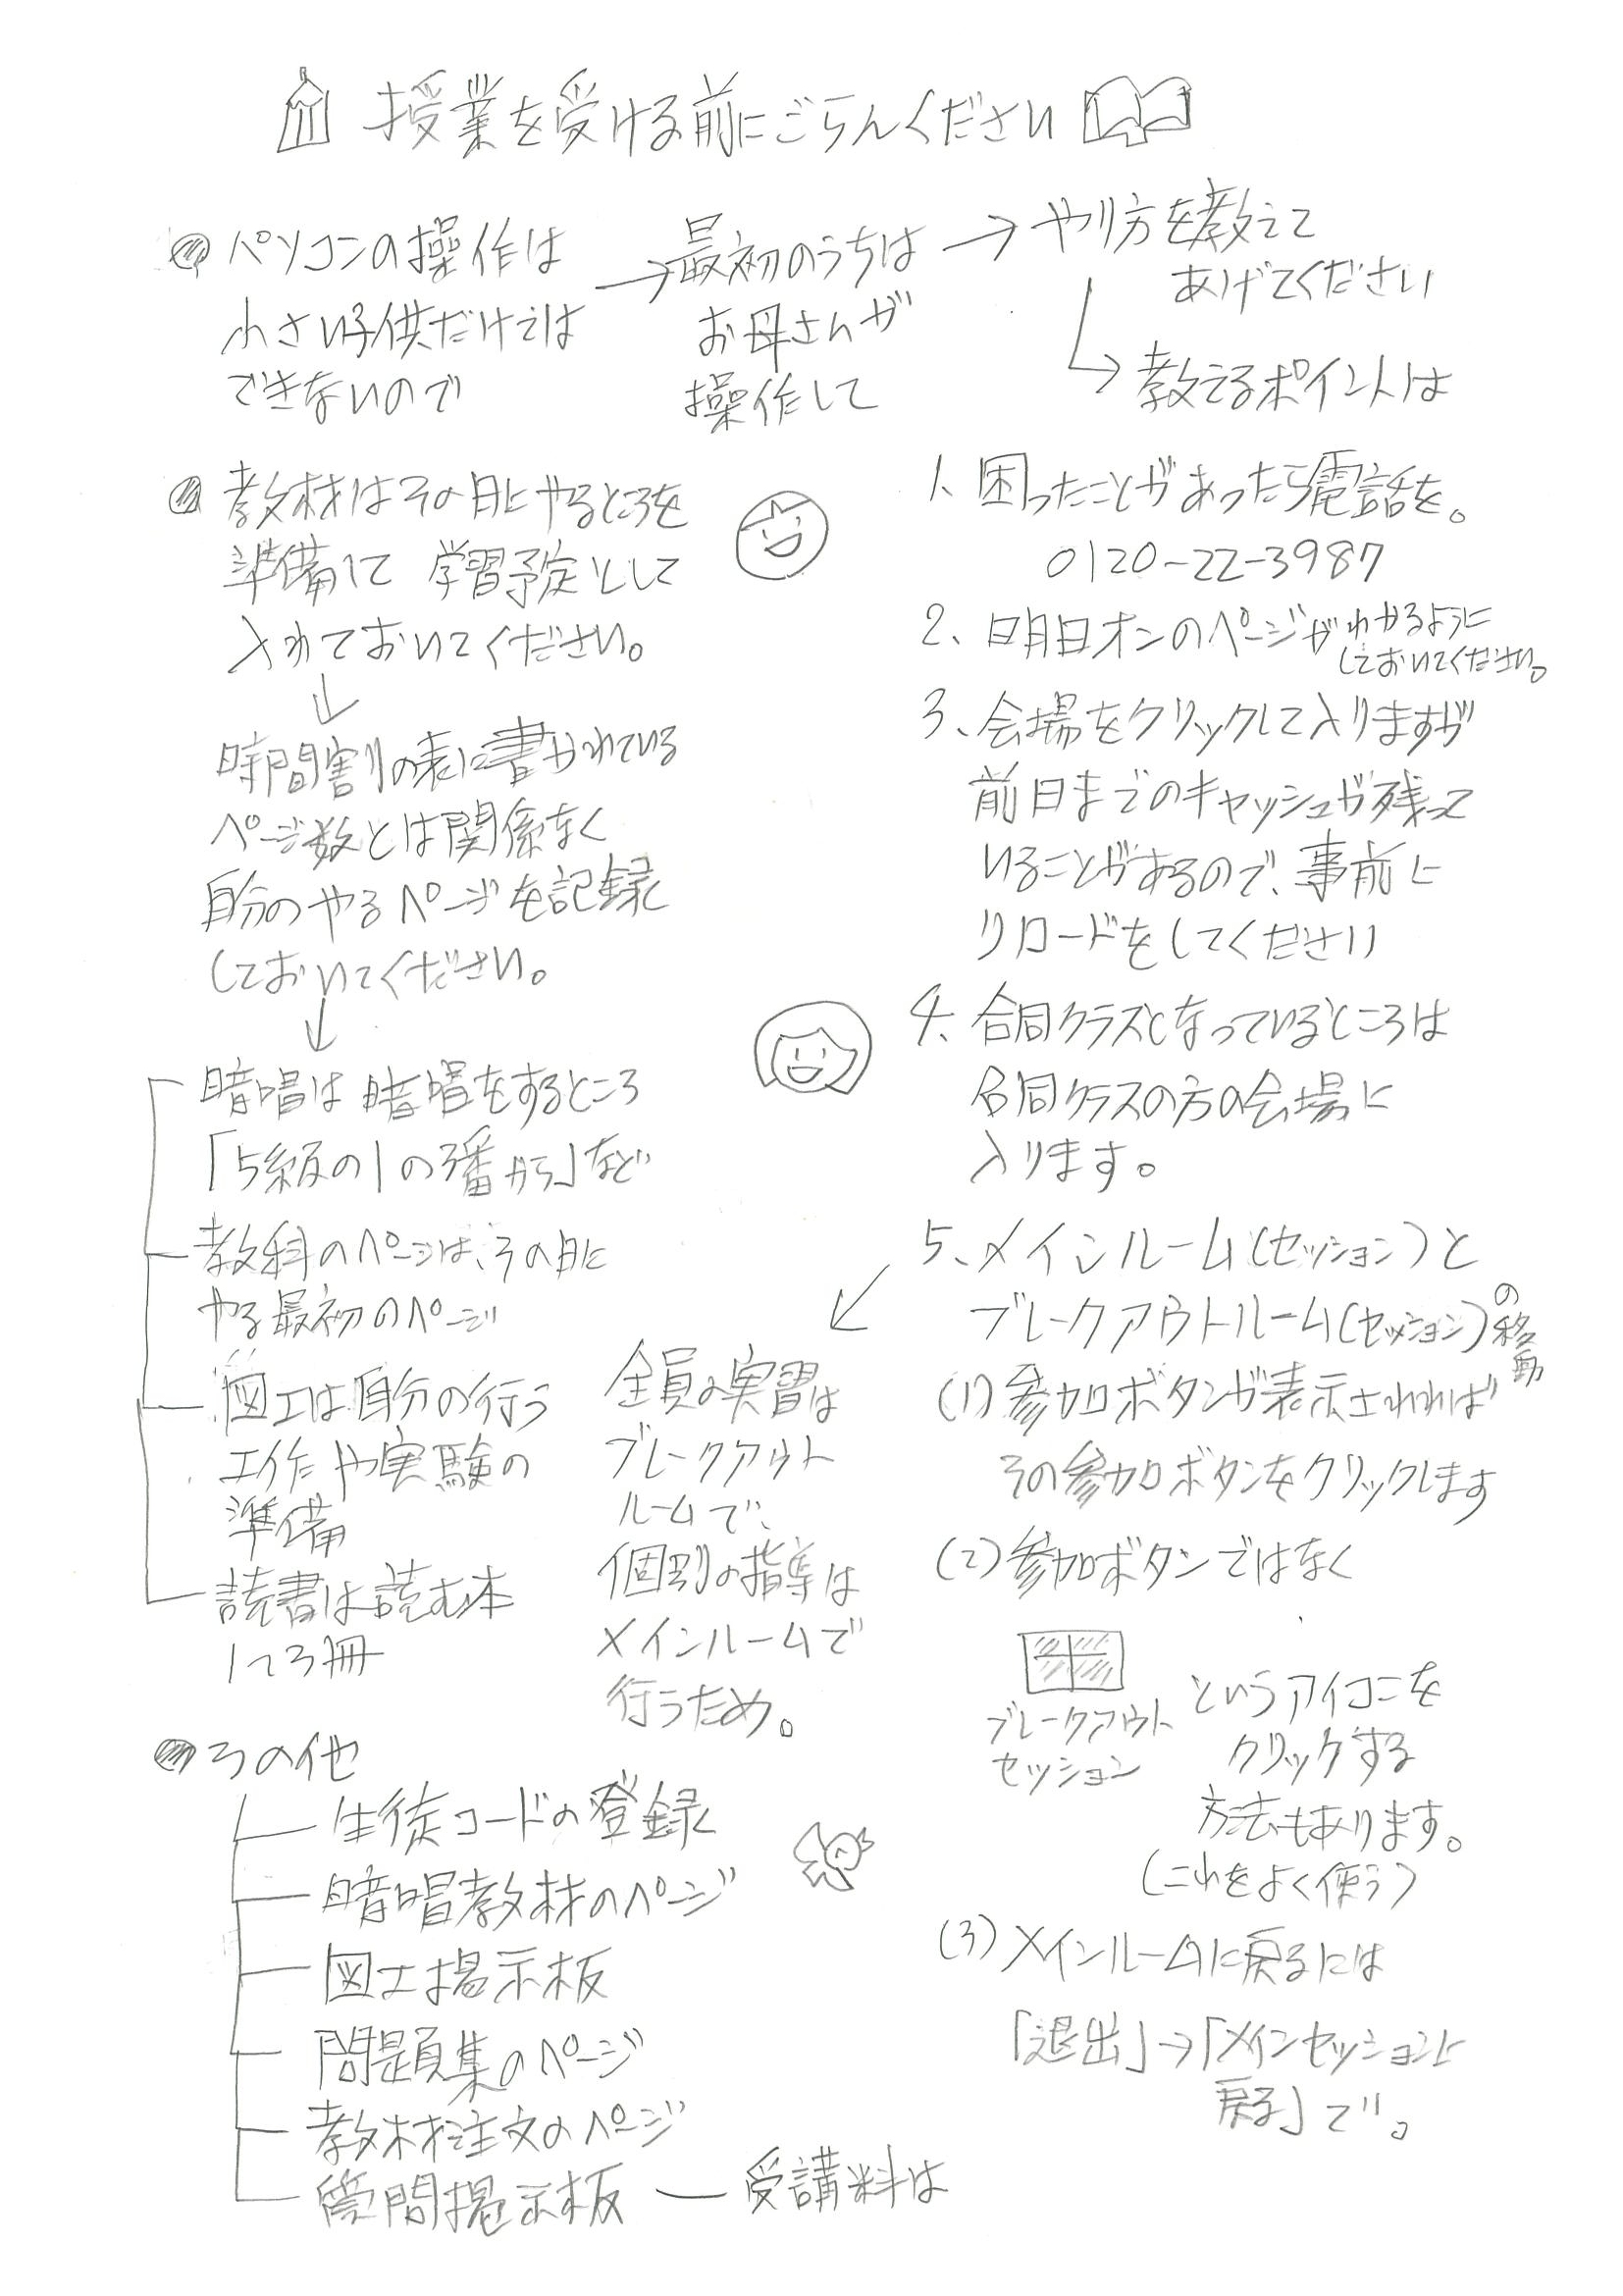 授業を受ける前にごらんください
パソコンの操作は
小さい子供だけでは
できないので
→最初のうちは
お母さんが
操作して
→やり方を教えて
あげてください
→教えるポイントは
教材はその日にやるところを
準備して 学習予定として
入れておいてください。
↓
時間割の表に書かれている
ページ数とは関係なく
自分のやるページを記録
しておいてください。
↓
暗唱は暗唱をするところ
「5級の1の3番から」など
教科のページは、その日に
やる最初のページ
図工は自分の行う
工作や実験の
準備
読書は読む本
1~3冊
その他
生徒コードの登録
暗唱教材のページ
図工掲示板
問題集のページ
教材注文のページ
質問掲示板 — 受講料は
1、困ったことがあったら電話を。
0120-22-3987
2、日月日オンのページがわかるように
しておいてください。
3、会場をクリックして入りますが
前日までのキャッシュが残って
いることがあるので、事前に
リロードをしてください
4、合同クラスとなっているところは
合同クラスの方の会場に
入ります。
5、メインルーム(セッション)と
ブレークアウトルーム(セッション)の移動
(1)参加ボタンが表示されれば
その参加ボタンをクリックします
(2)参加ボタンではなく
ブレークアウト
セッション
というアイコンを
クリックする
方法もあります。
(これをよく使う)
(3)メインルームに戻るには
「退出」→「メインセッションに
戻る」で。
全員の実習は
ブレークアウト
ルームで、
個別の指導は
メインルームで
行うため。